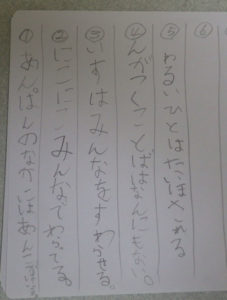 ①あんぱんのなかにはあん
②にこにこみんなでわらってる。
③いすはみんなをすわらせる。
④んがつくことばはなんにもない。
⑤わるいひとはたいほされる
⑥